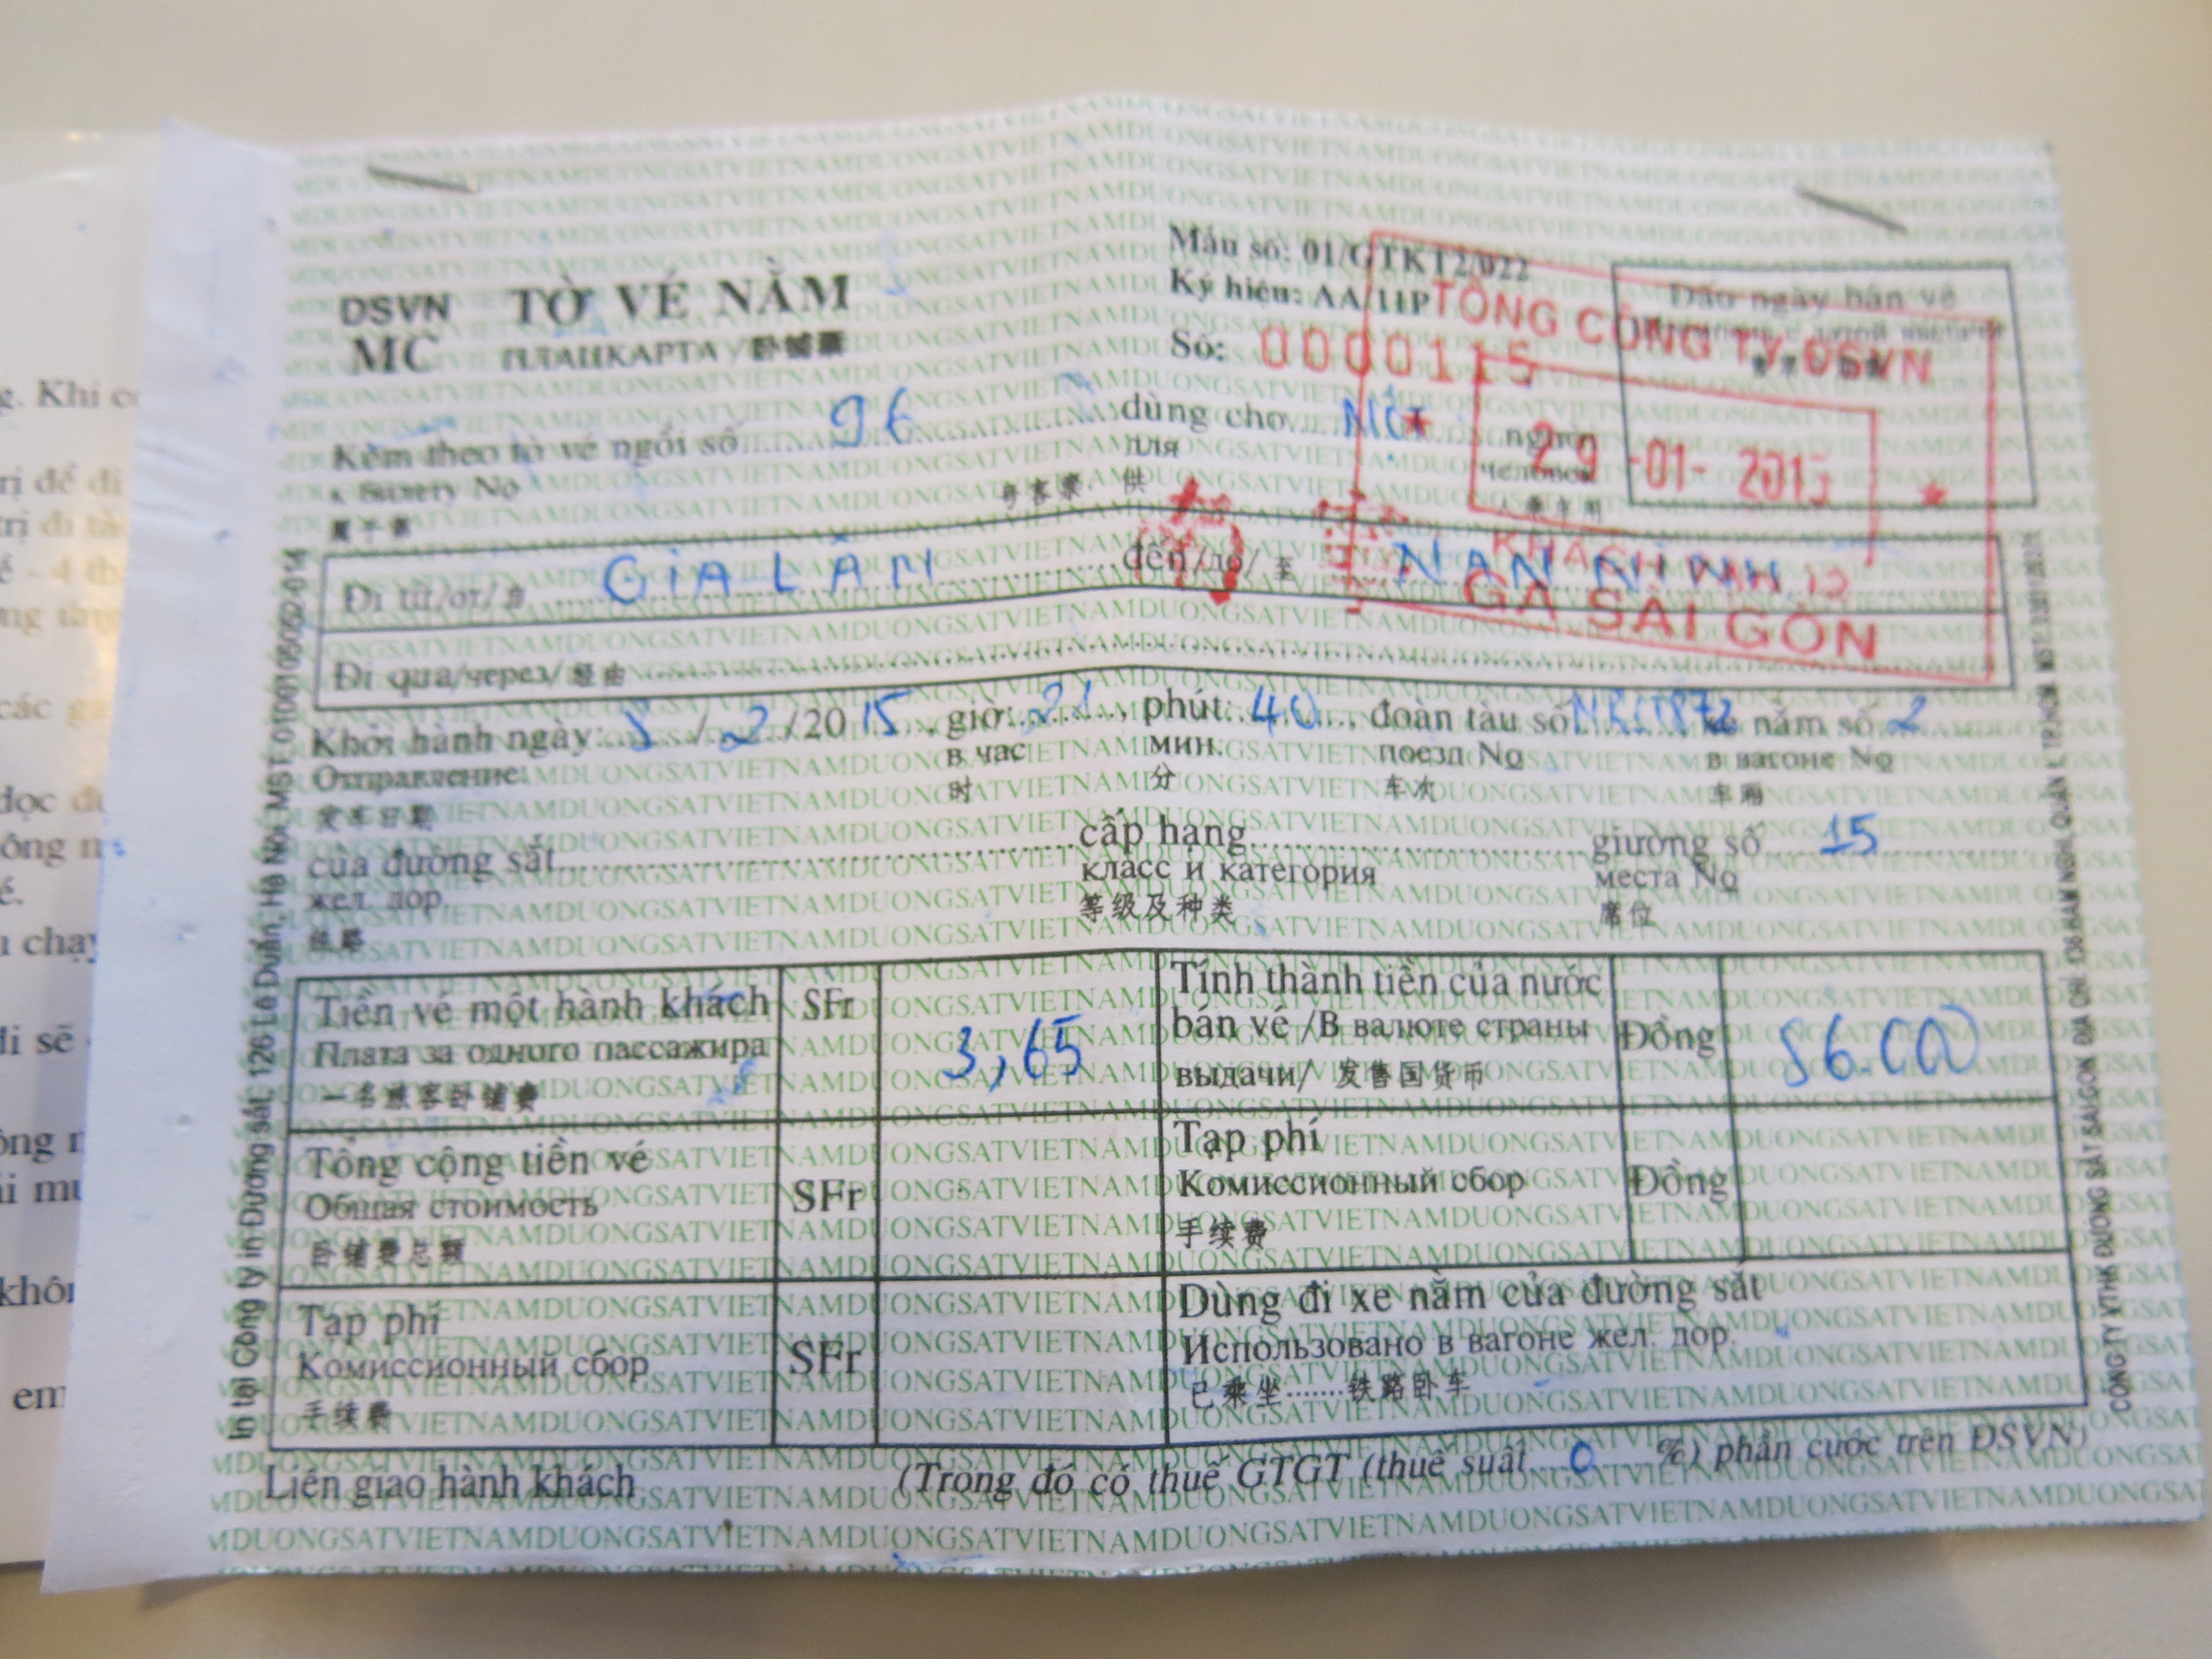 Mẫu số: 01/GTKT2/022
DSVN TỜ VÉ NẰM Ký hiệu: AA/11P
MC ПЛАЦКАРТА / 卧铺票 Số: 0000115
Dấu ngày bán vé
TỔNG CÔNG TY ĐSVN
29 -01- 2015
GA SÀI GÒN
Kèm theo tờ vé ngồi số 96 dùng cho MỘT người
к билету No для человек
属于第 号客票. 供 人乘车用
Đi từ/от/ 自 GIA LÂM đến /до/ 至 NAN NINH
Đi qua/через/ 经由
Khởi hành ngày: / 2 / 20 15 giờ: 21 phút: 40 đoàn tàu số xe nằm số 2
Отправление: в час мин. поезд No в вагоне No
发车日期 时 分 车次 车厢
của đường sắt cấp hạng giường số 15
жел. дор. класс и категория места No
铁路 等级及种类 席位
Tiền vé một hành khách SFr 3,65 Tính thành tiền của nước
Плата за одного пассажира bán vé /В валюте страны Đồng 86.000
一名旅客卧铺费 выдачи/ 发售国货币
Tổng cộng tiền vé SFr Tạp phí
Общая стоимость Комиссионный сбор Đồng
卧铺费总额 手续费
Tạp phí SFr Dùng đi xe nằm của đường sắt
Комиссионный сбор Использовано в вагоне жел. дор.
手续费 已乘坐........铁路卧车
Liên giao hành khách (Trong đó có thuế GTGT (thuế suất 0 %) phần cước trên ĐSVN)
In tại Công ty in Đường sắt, 126 Lê Duẩn, Hà Nội, MST
CÔNG TY VTHK ĐƯỜNG SẮT SÀI GÒN
g. Khi
trị để đi
trị đi
các
dọc
ông
é.
u chạy
đi sẽ
ông
khôn
em